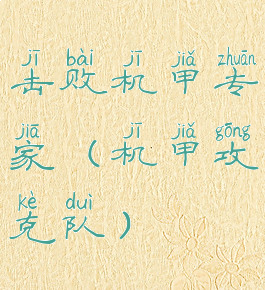 jī bài jī jiǎ zhuān
击败机甲专
jiā jī jiǎ gōng
家（机甲攻
kè duì
克队）